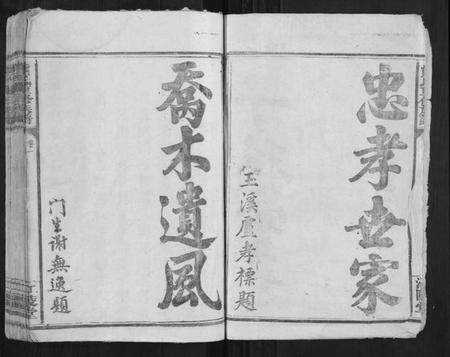 忠孝世家
玉溪盧孝標題
喬木遺風
门生謝無逸題